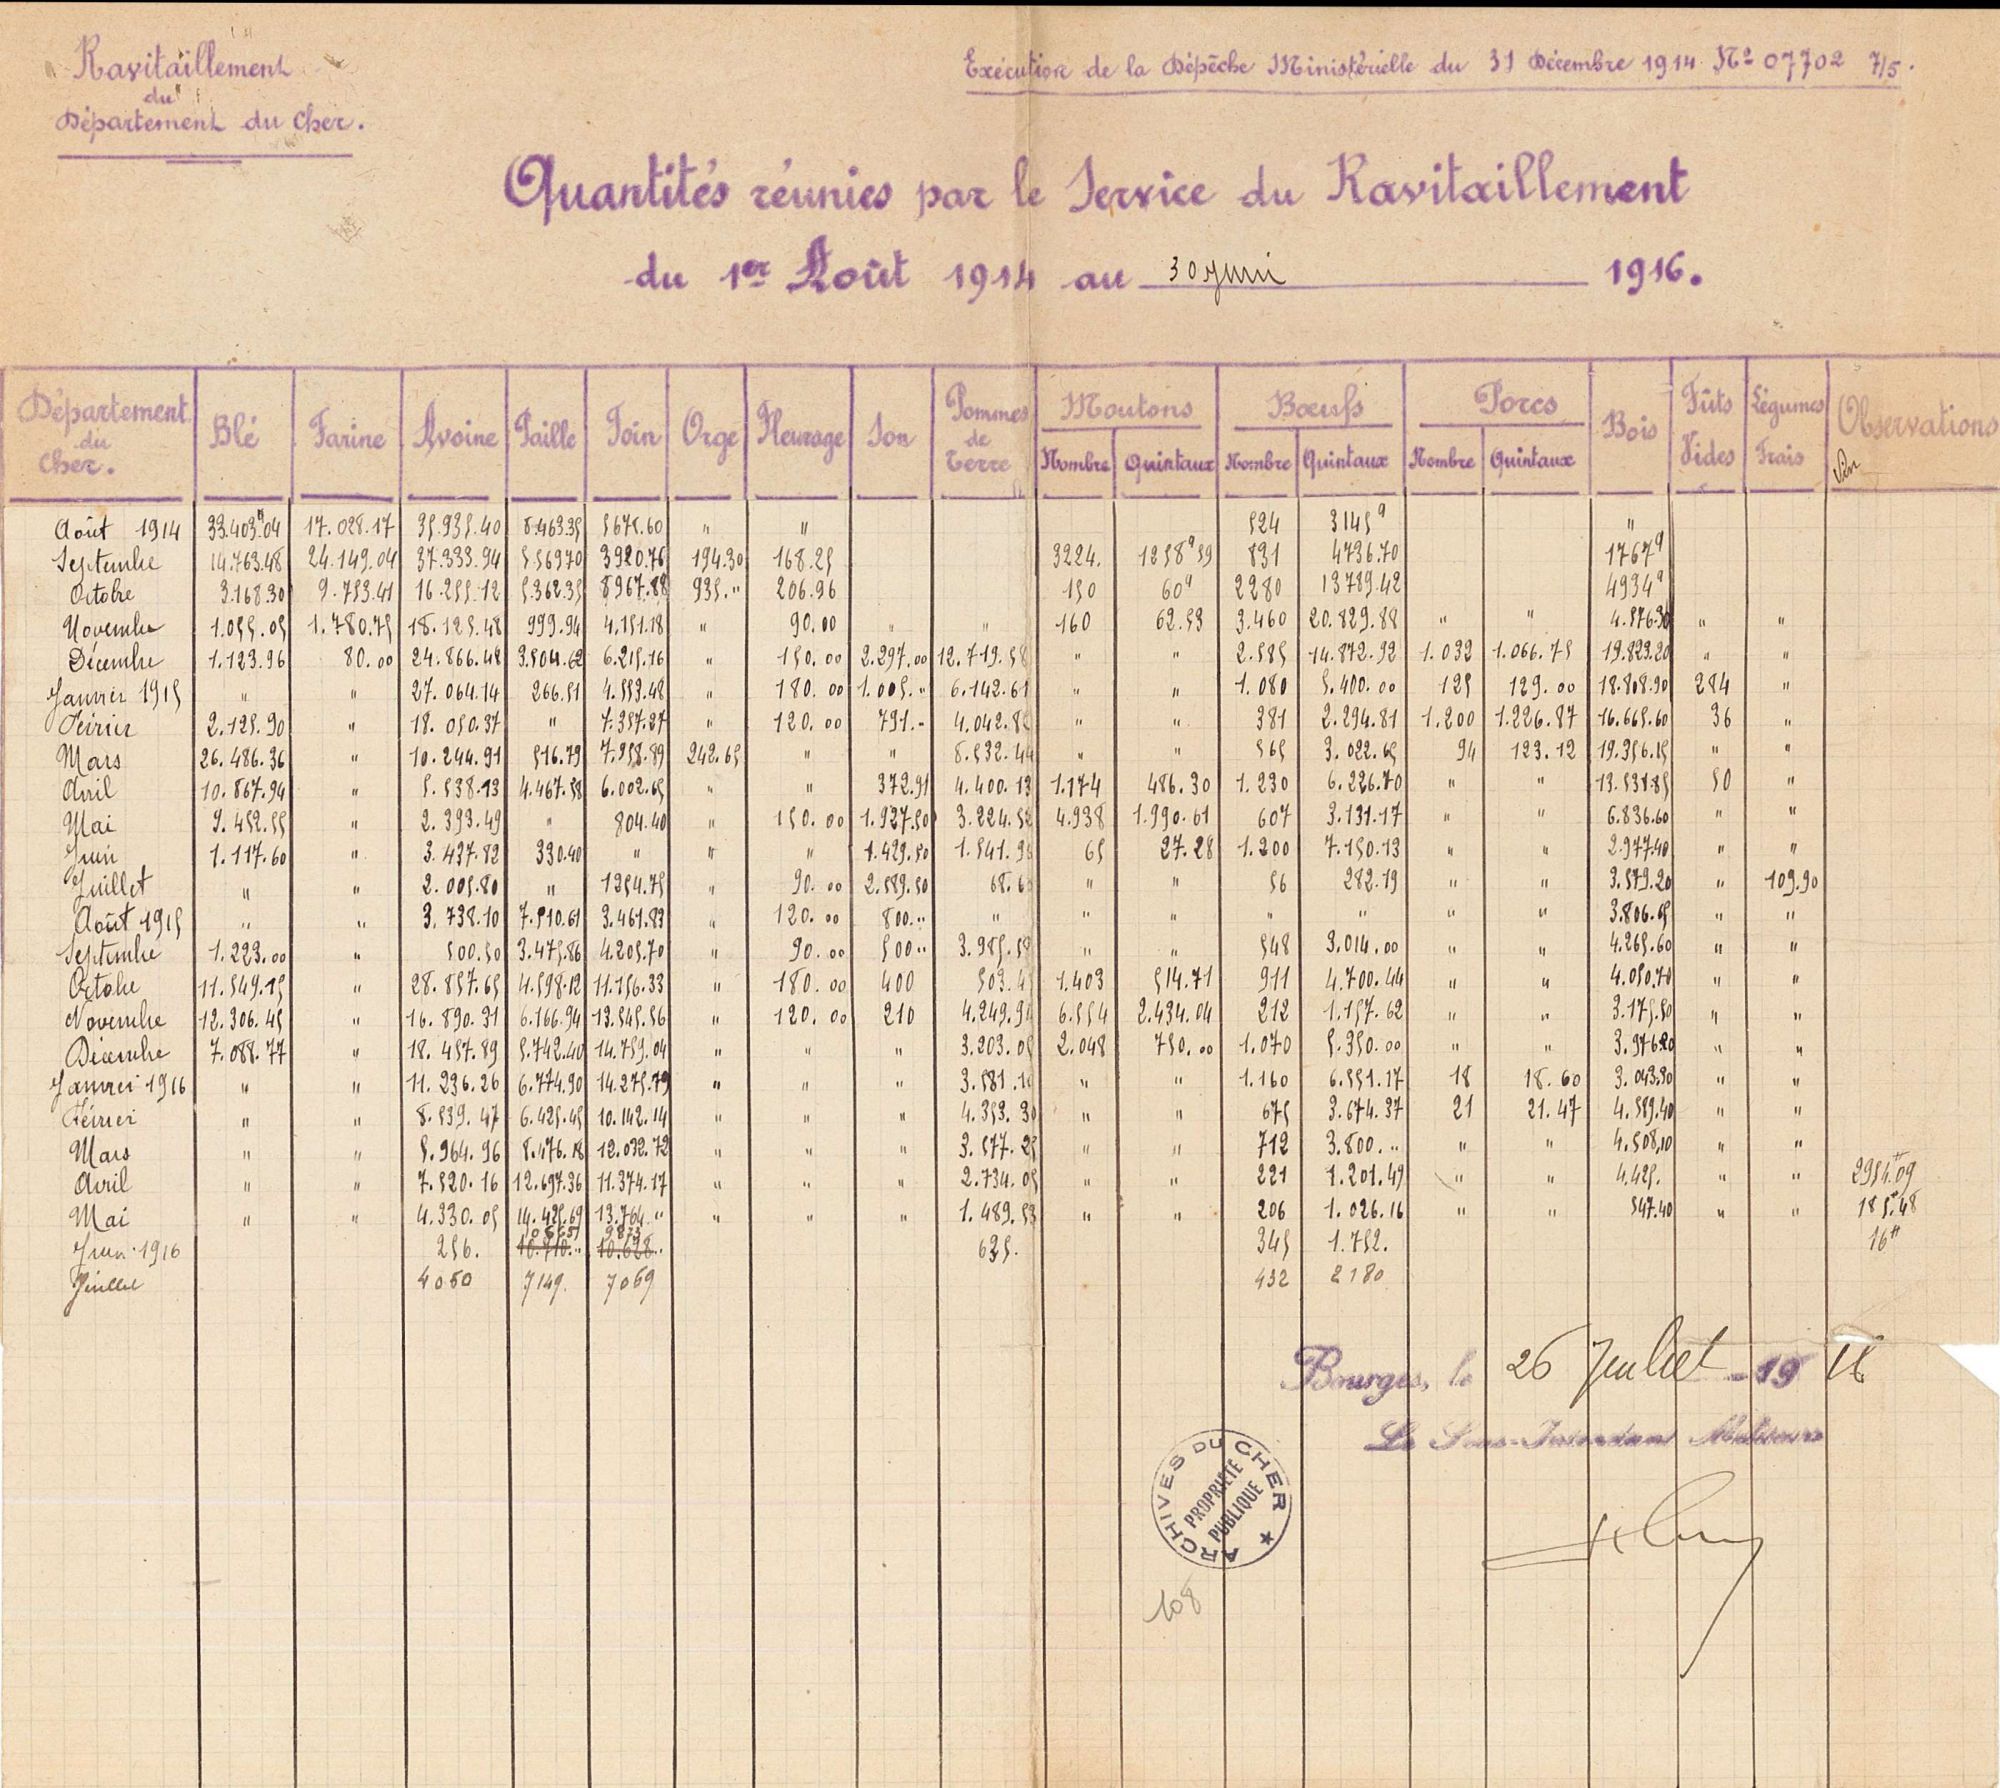 Ravitaillement
du
Département du Cher.
Exécution de la Dépêche Ministérielle du 31 Décembre 1914 No 07702 7/5.
Quantités réunies par le Service du Ravitaillement
du 1er Août 1914 au 30 Juin 1916.
Département du Cher. Blé Farine Avoine Paille Foin Orge Fleurage Son Pommes de Terre Moutons Bœufs Porcs Bois Fûts Vides Légumes Frais Observations
Nombre Quintaux Nombre Quintaux Nombre Quintaux Vin
Août 1914 33.403q04 17.028.17 35.935.40 8.463.35 5675.60 " " 524 3145q "
Septembre 14.763.48 24.149.04 37.333.94 5.569.70 3920.76 194.30 168.25 3224. 1258q59 831 4736.70 1767q
Octobre 3.168.30 9.753.41 16.255.12 5.362.35 8967.88 935." 206.96 150 60q 2280 13789.42 4934q
Novembre 1.055.05 1.780.75 18.125.48 999.94 4.151.18 " 90.00 " " 160 62.53 3.460 20.829.88 " " 4.576.30 " "
Décembre 1.123.96 80.00 24.866.48 3.504.62 6.215.16 " 150.00 2.297.00 12.719.58 " " 2.585 14.872.92 1.032 1.066.75 19.823.20 " "
Janvier 1915 " " 27.064.14 266.51 4.553.48 " 180.00 1.005." 6.142.61 " " 1.080 5.400.00 125 129.00 18.808.90 284 "
Février 2.125.90 " 18.050.37 " 7.357.27 " 120.00 791.- 4.042.82 " " 381 2.294.81 1.200 1.226.87 16.665.60 36 "
Mars 26.486.36 " 10.244.91 516.79 7.958.89 242.65 " " 8.532.44 " " 565 3.022.65 94 123.12 19.356.15 " "
Avril 10.867.94 " 5.538.13 4.467.58 6.002.65 " " 372.91 4.400.13 1.174 486.30 1.230 6.226.70 " " 13.531.85 50 "
Mai 9.452.55 " 2.393.49 " 804.40 " 150.00 1.927.50 3.224.52 4.938 1.990.61 607 3.131.17 " " 6.836.60 " "
Juin 1.117.60 " 3.437.82 330.40 " " " 1.429.50 1.541.96 65 27.28 1.200 7.150.13 " " 2.977.40 " "
Juillet " " 2.005.80 " 1254.75 " 90.00 2.589.50 68.60 " " 56 282.19 " " 3.579.20 " 109.90
Août 1915 " " 3.738.10 7.510.61 3.461.83 " 120.00 800." " " " " " " " 3.806.65 " "
Septembre 1.223.00 " 500.50 3.475.86 4.205.70 " 90.00 500." 3.985.58 " " 548 3.014.00 " " 4.265.60 " "
Octobre 11.549.15 " 28.857.65 4.598.12 11.156.33 " 180.00 400 503.45 1.403 514.71 911 4.700.44 " " 4.050.70 " "
Novembre 12.306.45 " 16.890.31 6.166.94 13.545.56 " 120.00 210 4.249.94 6.554 2.434.04 212 1.157.62 " " 3.175.50 " "
Décembre 7.088.77 " 18.457.89 5.742.40 14.759.04 " " " 3.203.05 2.048 750.00 1.070 5.350.00 " " 3.976.20 " "
Janvier 1916 " " 11.236.26 6.774.90 14.275.79 " " " 3.581.10 " " 1.160 6.551.17 18 18.60 3.043.90 " "
Février " " 8.539.47 6.425.45 10.142.14 " " " 4.353.30 " " 675 3.674.37 21 21.47 4.589.40 " "
Mars " " 5.964.96 8.476.18 12.032.72 " " " 3.577.25 " " 712 3.800." " " 4.508,10 " "
Avril " " 7.520.16 12.697.36 11.374.17 " " " 2.734.05 " " 221 1.201.49 " " 4.425. " " 2954.09
Mai " " 4.330.05 14.425.69 13.764." " " " 1.489.53 " " 206 1.026.16 " " 547.40 " " 185.48
Juin 1916 256. 9873 625. 345 1.752. 16
Juillet 4050 7149. 7069 432 2180
Bourges, le 26 Juillet 1916
Le Sous-Intendant Militaire
ARCHIVES DU CHER
PROPRIÉTÉ
PUBLIQUE
108